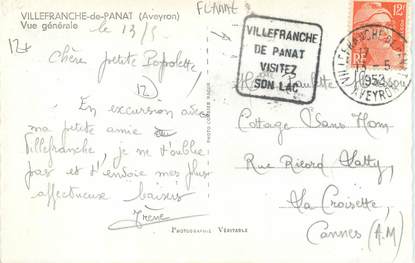 VILLEFRANCHE-de-PANAT (Aveyron)
Vue générale
le 13/5
12+
Chère petite Popolette
12
En excursion avec
ma petite amie de
Villefranche je ne t'oublie
pas et t'envoie mes plus
affectueux baisers
Irène
PHOTOGRAPHIE VÉRITABLE
VILLEFRANCHE
DE PANAT
VISITEZ
SON LAC
12F
RF
VILLEFRANCHE DE
5
1952
AVEYRON
Paulette
Cottage Sans Nom
Rue Ricord Latty
La Croisette
Cannes (A.M)